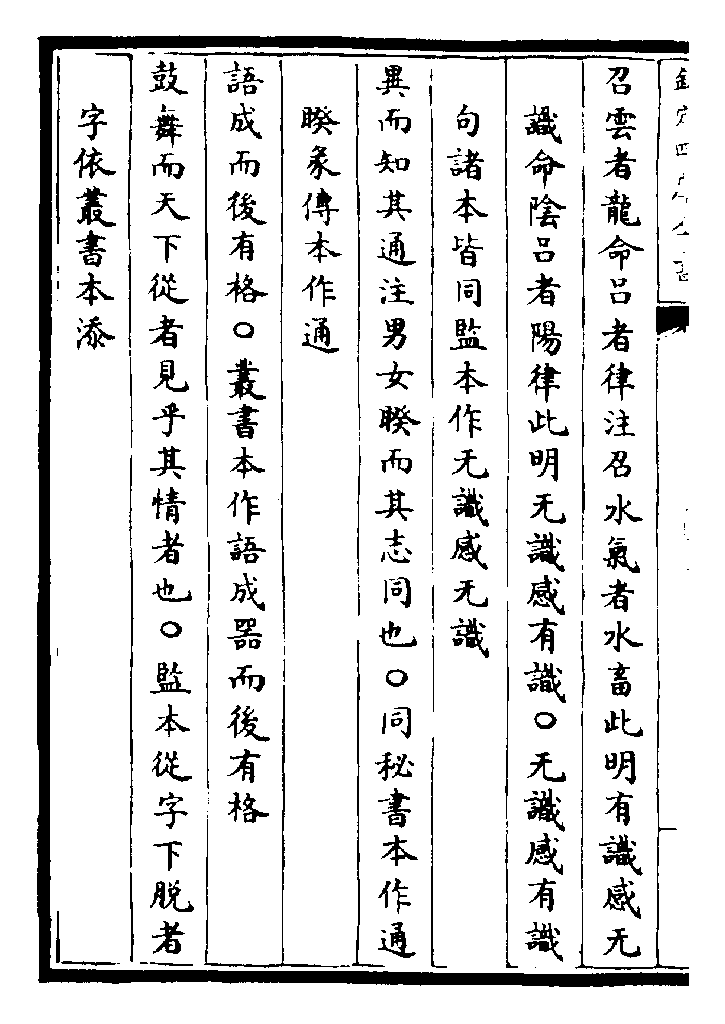 召雲者龍命呂者律注召水氣者水畜此明有識感无
識命陰呂者陽律此明无識感有識○无識感有識
句諸本皆同監本作无識感无識
異而知其通注男女睽而其志同也○同秘書本作通
睽彖傳本作通
語成而後有格○叢書本作語成器而後有格
鼓舞而天下從者見乎其情者也○監本從字下脱者
字依叢書本添